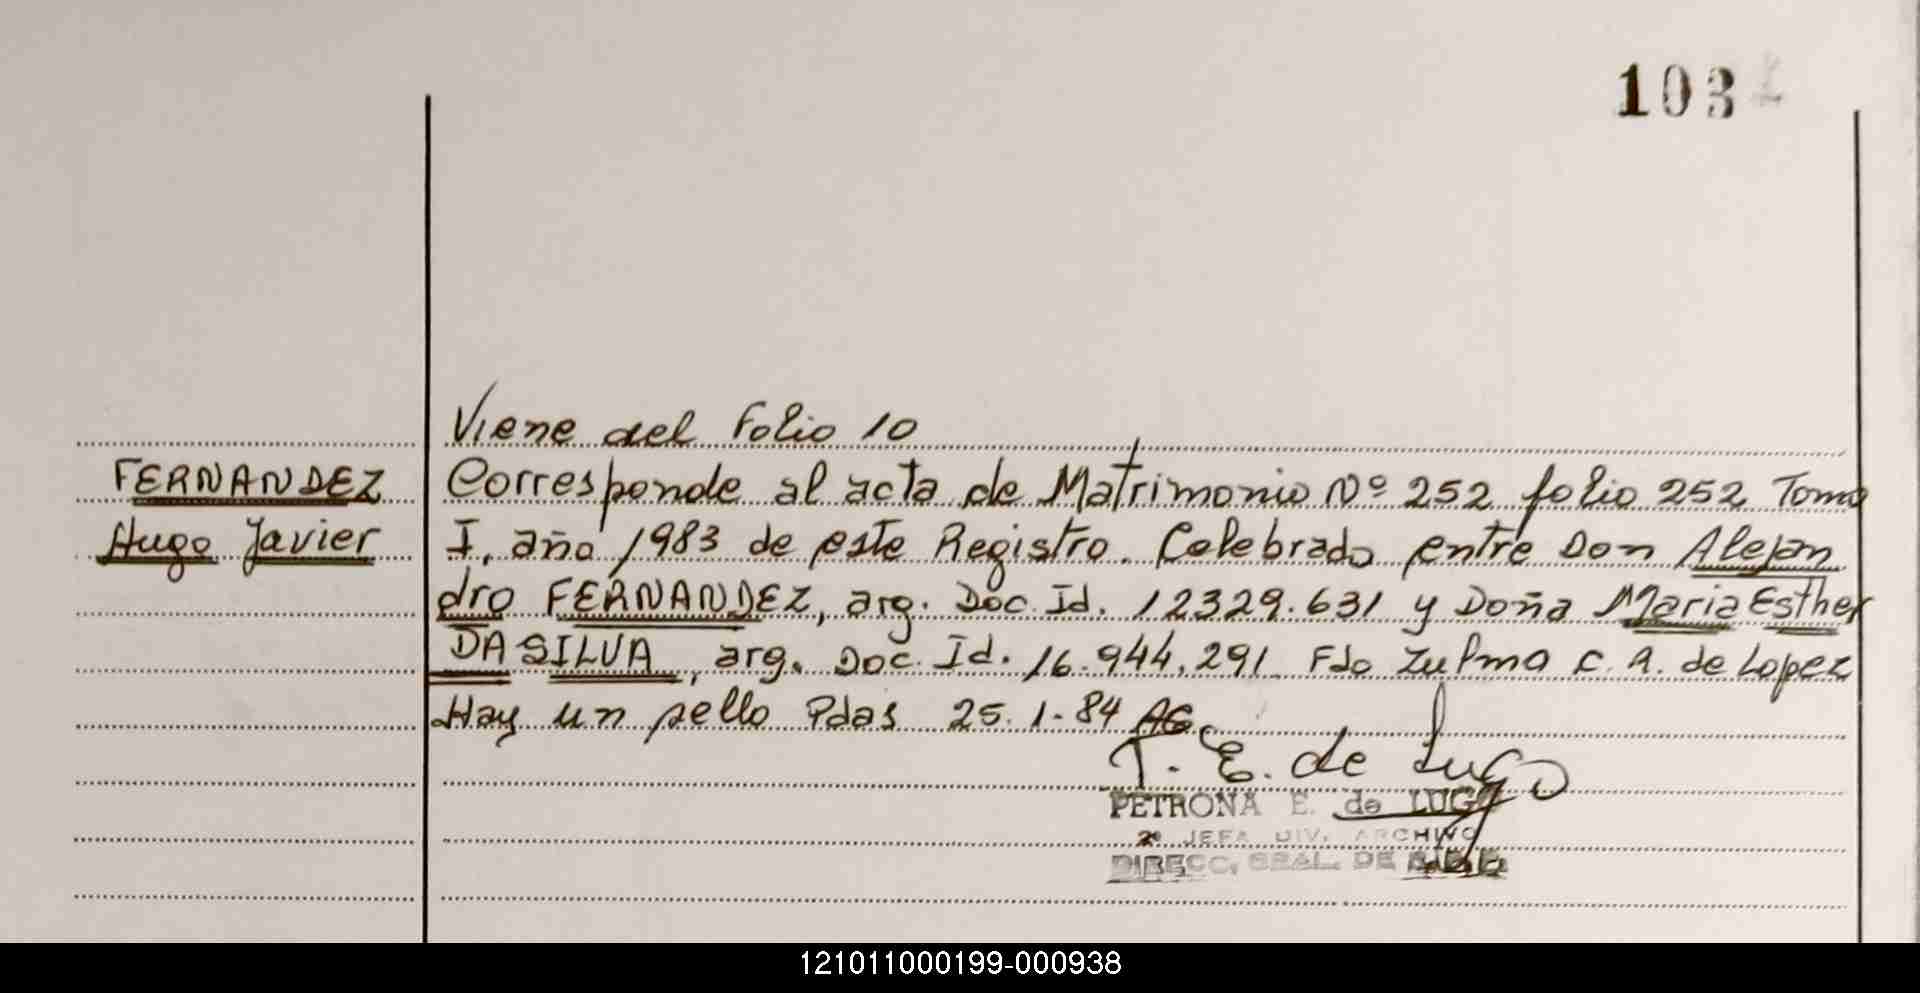 103
Viene del Folio 10
FERNANDEZ Corresponde al acta de Matrimonio Nº 252 folio 252 Tomo
Hugo Javier I, año 1983 de este Registro. Celebrado entre Don Alejan
dro FERNANDEZ, arg. Doc. Id. 12329.631 y Doña Maria Esther
DA SILVA, arg. Doc. Id. 16.944.291 Fdo Zulma C. A. de Lopez
Hay un sello Pdas 25.1.84 AG
P. E. de Lugo
PETRONA E. de LUGO
2º JEFA DIV. ARCHIVO
DIRECC. GRAL. DE
121011000199-000938